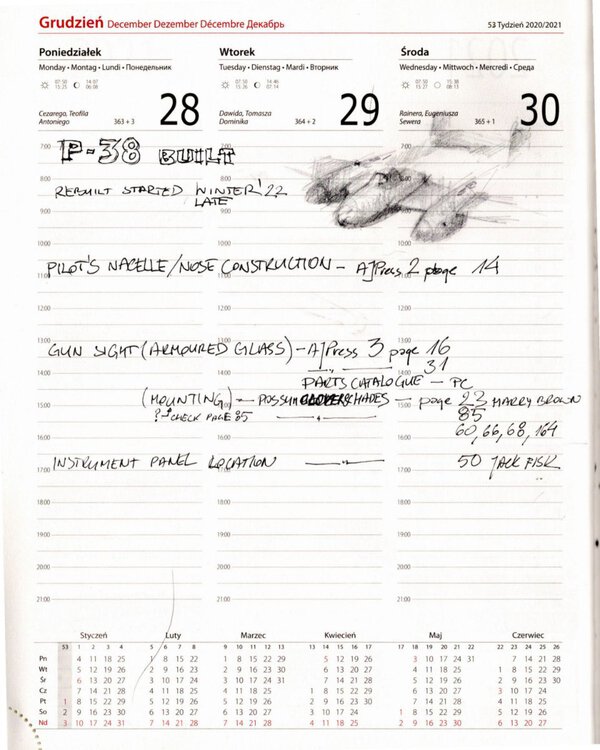 Grudzień December Dezember Décembre Декабрь
53 Tydzień 2020/2021
Poniedziałek
Monday • Montag • Lundi • Понедельник
07:50 14:07
15:25 06:08
Cezarego, Teofila
Antoniego
363 + 3
28
Wtorek
Tuesday • Dienstag • Mardi • Вторник
07:50 14:46
15:26 07:14
Dawida, Tomasza
Dominika
364 + 2
29
Środa
Wednesday • Mittwoch • Mercredi • Среда
07:50 15:38
15:27 08:13
Rainera, Eugeniusza
Sewera
365 + 1
30
7:00
P-38 BUILT
8:00
REBUILT STARTED WINTER '22
LATE
9:00
10:00
11:00
PILOT'S NACELLE/NOSE CONSTRUCTION - AJPress 2 page 14
12:00
13:00
GUN SIGHT (ARMOURED GLASS) - AJPress 3 page 16
31
14:00
PARTS CATALOGUE - PC
(MOUNTING) - POSSUM SHADES - page 23 MARRY BROWN
15:00
? CHECK PAGE 85
85
60, 66, 68, 164
16:00
INSTRUMENT PANEL LOCATION 50 JACK FISK
17:00
18:00
19:00
20:00
21:00
Styczeń Luty Marzec Kwiecień Maj Czerwiec
53 1 2 3 4 5 6 7 8 9 10 11 12 13 13 14 15 16 17 17 18 19 20 21 22 22 23 24 25 26
Pn 4 11 18 25 1 8 15 22 1 8 15 22 29 5 12 19 26 3 10 17 24 31 7 14 21 28
Wt 5 12 19 26 2 9 16 23 2 9 16 23 30 6 13 20 27 4 11 18 25 1 8 15 22 29
Śr 6 13 20 27 3 10 17 24 3 10 17 24 31 7 14 21 28 5 12 19 26 2 9 16 23 30
Cz 7 14 21 28 4 11 18 25 4 11 18 25 1 8 15 22 29 6 13 20 27 3 10 17 24
Pt 1 8 15 22 29 5 12 19 26 5 12 19 26 2 9 16 23 30 7 14 21 28 4 11 18 25
So 2 9 16 23 30 6 13 20 27 6 13 20 27 3 10 17 24 1 8 15 22 29 5 12 19 26
Nd 3 10 17 24 31 7 14 21 28 7 14 21 28 4 11 18 25 2 9 16 23 30 6 13 20 27